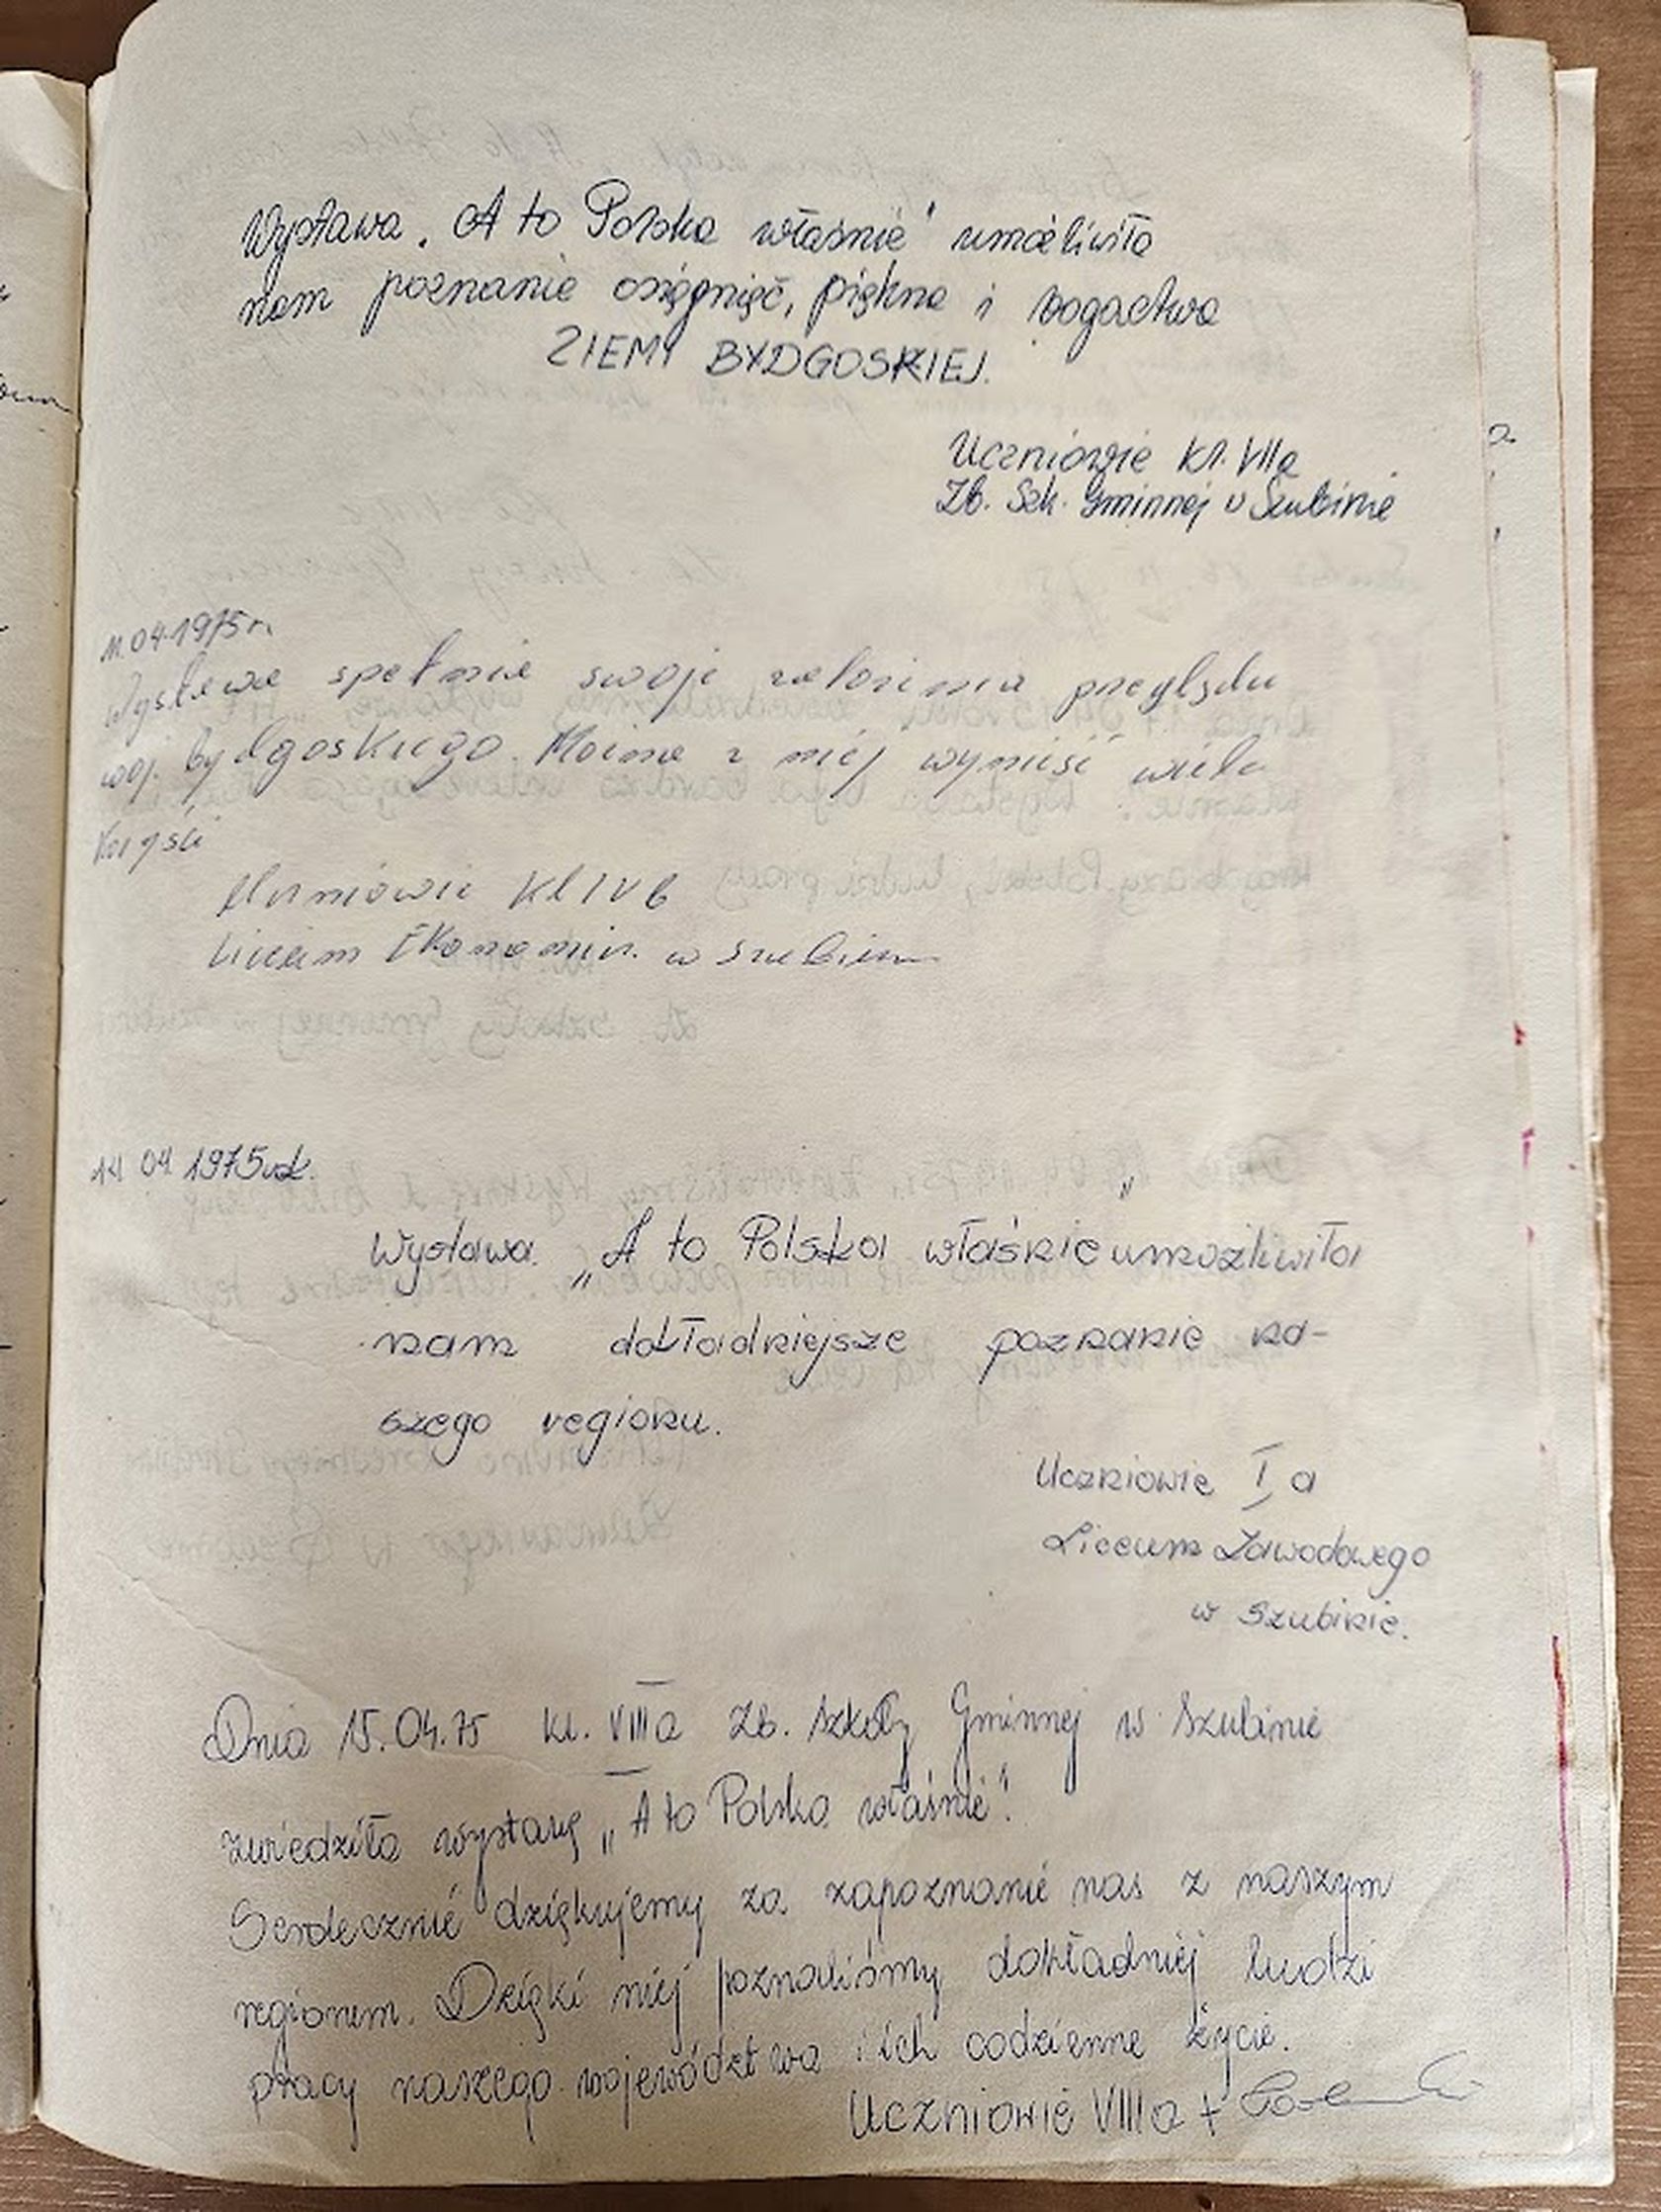 Wystawa „A to Polska właśnie" umożliwiła
nam poznanie osiągnięć, piękna i bogactwa
ZIEMI BYDGOSKIEJ.
Uczniowie kl. VIIa
Zb. Szk. Gminnej w Szubinie
11.04.1975 r.
Wystawa spełnia swoje założenia przeglądu
woj. bydgoskiego. Można z niej wynieść wiele
korzyści
Uczniowie kl IV b
Liceum Ekonomicz. w Szubinie
14 04 1975 rok.
Wystawa „A to Polska właśnie" umożliwiła
nam dokładniejsze poznanie na-
szego regionu.
Uczniowie I a
Liceum Zawodowego
w Szubinie.
Dnia 15.04.75 kl. VIIIa Zb. Szkoły Gminnej w Szubinie
zwiedziła wystawę „A to Polska właśnie".
Serdecznie dziękujemy za zapoznanie nas z naszym
regionem. Dzięki niej poznaliśmy dokładniej ludzi
pracy naszego województwa i ich codzienne życie.
Uczniowie VIIIa +